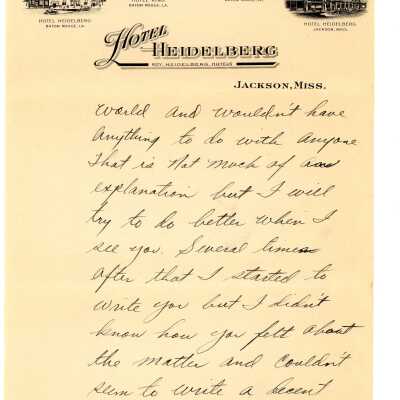 HOTEL HEIDELBERG
BATON ROUGE, LA.
BATON ROUGE, LA.
BATON ROUGE, LA.
HOTEL HEIDELBERG
JACKSON, MISS.
HOTEL HEIDELBERG
ROY. HEIDELBERG,
JACKSON, MISS.
World and wouldn't have
anything to do with anyone
That is not much of
explanation but I will
try to do better when I
see you. Several times
after that I started to
write you but I didn't
know how you felt about
the matter and couldn't
seem to write a decent